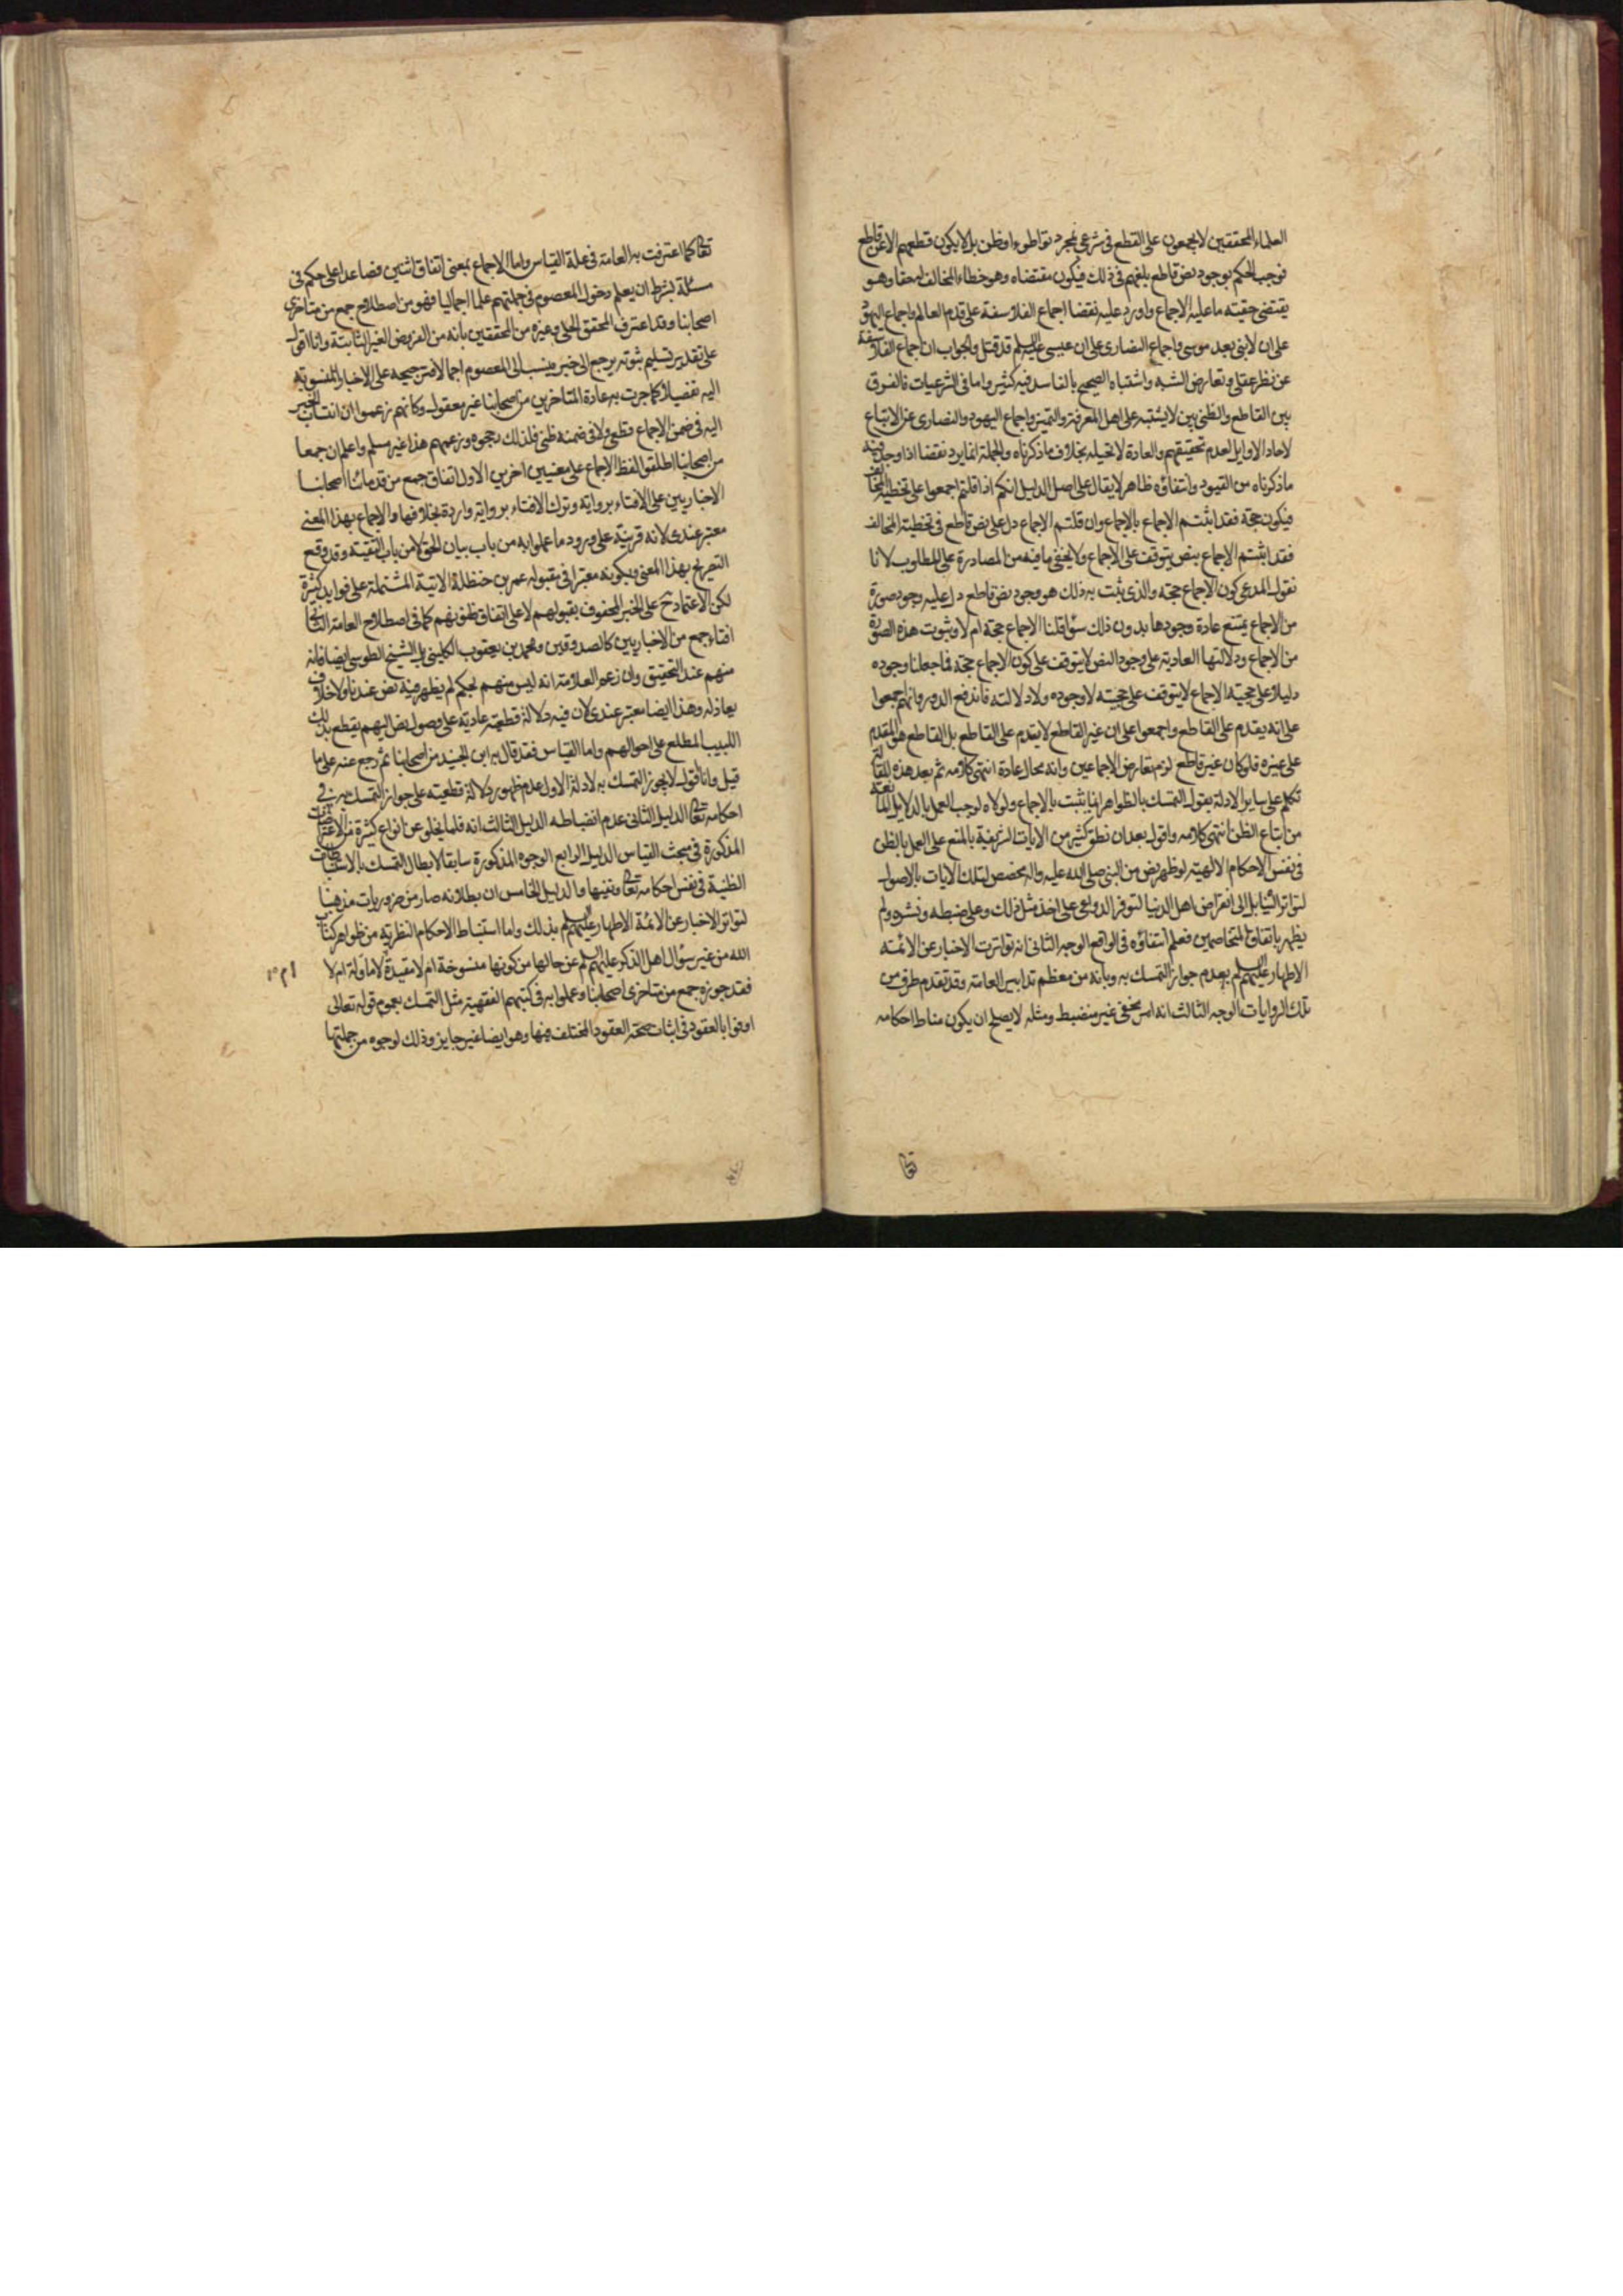 العلماء المحققين لا يجمعون على القطع فى شرعى بمجرد تواطؤ او ظن بل لا يكون قطعهم الا عن قاطع
فوجب الحكم بوجود نص قاطع بلغهم فى ذلك فيكون مقتضاه وهو خطاء المخالف له حقا وهو
يقتضى حقية ما عليه الاجماع واورد عليه نقضا اجماع الفلاسفة على قدم العالم واجماع اليهود
على ان لا نبى بعد موسى واجماع النصارى على ان عيسى عليه السلم قد قتل والجواب ان اجماع الفلاسفة
عن نظر عقلى وتعارض الشبه واشتباه الصحيح بالفاسد فيه كثير واما فى الشرعيات فالفرق
بين القاطع والظنى بين لا يشتبه على اهل المعرفة والتميز واجماع اليهود والنصارى عن الاتباع
لاحاد الاوايل لعدم تحقيقهم والعادة لا تحيله بخلاف ما ذكرناه وبالجملة انما يرد نقضا اذا وجد فيه
ما ذكرناه من القيود وانتفاؤه ظاهر لا يقال على اصل الدليل انكم اذا قلتم اجمعوا على تخطئة المخالف
فيكون حجة فقد اثبتم الاجماع بالاجماع وان قلتم الاجماع دل على نص قاطع فى تخطئة المخالف
فقد اثبتم الاجماع بنص يتوقف على الاجماع ولا يخفى ما فيه من المصادرة على المطلوب لانا
نقول المدعى كون الاجماع حجة والذى يثبت به ذلك هو وجود نص قاطع دل عليه وجود صورة
من الاجماع يمتنع عادة وجودها بدون ذلك سواء قلنا الاجماع حجة ام لا وثبوت هذه الصورة
من الاجماع ودلالتها العادية على وجود النص لا يتوقف على كون الاجماع حجة فما جعلنا وجوده
دليلا على حجية الاجماع لا يتوقف على حجيته لا وجوده ولا دلالته فاندفع الدور وانهم اجمعوا
على انه يقدم على القاطع واجمعوا على ان غير القاطع لا يقدم على القاطع بل القاطع هو المقدم
على غيره فلو كان غير قاطع لزم تعارض الاجماعين وانه محال عادة انتهى كلامه ثم بعد هذه المقالة
تكلم على ساير الادلة بقوله التمسك بالظواهر انما يثبت بالاجماع ولولاه لوجب العمل بالدلايل المانعة
من اتباع الظن انتهى كلامه واقول بعد ان نطق كثير من الايات الشريفة بالمنع على العمل بالظن
فى نفس الاحكام الالهية لو ظهر نص من النبى صلى الله عليه واله مخصص لتلك الايات بالاصول
لتواتر الينا بل الى انقراض اهل الدنيا لتوفر الدواعى على اخذ مثل ذلك وعلى ضبطه ونشره ولم
يظهر باتفاق المتخاصمين فعلم انتفاؤه فى الواقع الوجه الثانى انه تواترت الاخبار عن الائمه
الاطهار عليهم السلم بعدم جواز التمسك به وبانه من معظم تدابير العامة وقد تقدم طرف من
تلك الروايات الوجه الثالث انه امر مخفى غير منضبط ومثله لا يصلح ان يكون مناط احكامه
تعالى
تعالى كما اعترفت به العامة فى علة القياس واما الاجماع بمعنى اتفاق اثنين فصاعدا على حكم فى
مسئلة بشرط ان يعلم دخول المعصوم فى جملتهم علما اجماليا فهو من اصطلاح جمع من متاخرى
اصحابنا وقد اعترف المحقق الحلى وغيره من المحققين بانه من الفروض الغير الثابتة وانا اقول
على تقدير تسليم ثبوته يرجع الى خبر ينسب الى المعصوم اجمالا فترجيحه على الاخبار المنسوبة
اليه تفصيلا كما جرت به عادة المتاخرين من اصحابنا غير معقول وكانهم زعموا ان انتساب الخبر
اليه فى ضمن الاجماع قطعى ولا فى ضمنه ظنى فلذلك رجحوه وزعمهم هذا غير مسلم واعلم ان جمعا
من اصحابنا اطلقوا لفظ الاجماع على معنيين اخرين الاول اتفاق جمع من قدمائنا اصحابنا
الاخباريين على الافتاء برواية وترك الافتاء برواية واردة بخلافها والاجماع بهذا المعنى
معتبر عندى لانه قرينة على ورود ما عملوا به من باب بيان الحق لا من باب التقية وقد وقع
التصريح بهذا المعنى وبكونه معتبرا فى مقبوله عمر بن حنظلة الاتية المشتملة على فوايد كثيرة
لكن الاعتماد ح على الخبر المحفوف بقبولهم لا على اتفاق ظنونهم كما فى اصطلاح العامة الثانى
افتاء جمع من الاخباريين كالصدوقين ومحمد بن يعقوب الكلينى بل الشيخ الطوسى ايضا فانه
منهم عند التحقيق وان زعم العلامة انه ليس منهم بحكم لم يظهر فيه نص عندنا ولا خلاف
يعادله وهذا ايضا معتبر عندى لان فيه دلالة قطعية عادية على وصول نص اليهم يقطع بذلك
اللبيب المطلع على احوالهم واما القياس فقد قال به ابن الجنيد من اصحابنا ثم رجع عنه على ما
قيل وانا اقول لا يجوز التمسك به لادلة الاول عدم ظهور دلالة قطعية على جواز التمسك به فى
احكامه تعالى الدليل الثانى عدم انضباطه الدليل الثالث انه قلما يخلو عن انواع كثيرة من الاعتراضات
المذكورة فى مبحث القياس الدليل الرابع الوجوه المذكورة سابقا لابطال التمسك بالاستنباطات
الظنية فى نفس احكامه تعالى ونفيها والدليل الخامس ان بطلانه صار من ضروريات مذهبنا
لتواتر الاخبار عن الائمة الاطهار عليهم السلم بذلك واما استنباط الاحكام النظرية من ظواهر كتاب
الله من غير سؤال اهل الذكر عليهم السلم عن حالها من كونها منسوخة ام لا مقيدة ام لا ماولة ام لا
فقد جوزه جمع من متاخرى اصحابنا وعملوا به فى كتبهم الفقهية مثل التمسك بعموم قوله تعالى
اوفوا بالعقود فى اثبات صحة العقود المختلف فيها وهو ايضا غير جايز وذلك لوجوه من جملتها